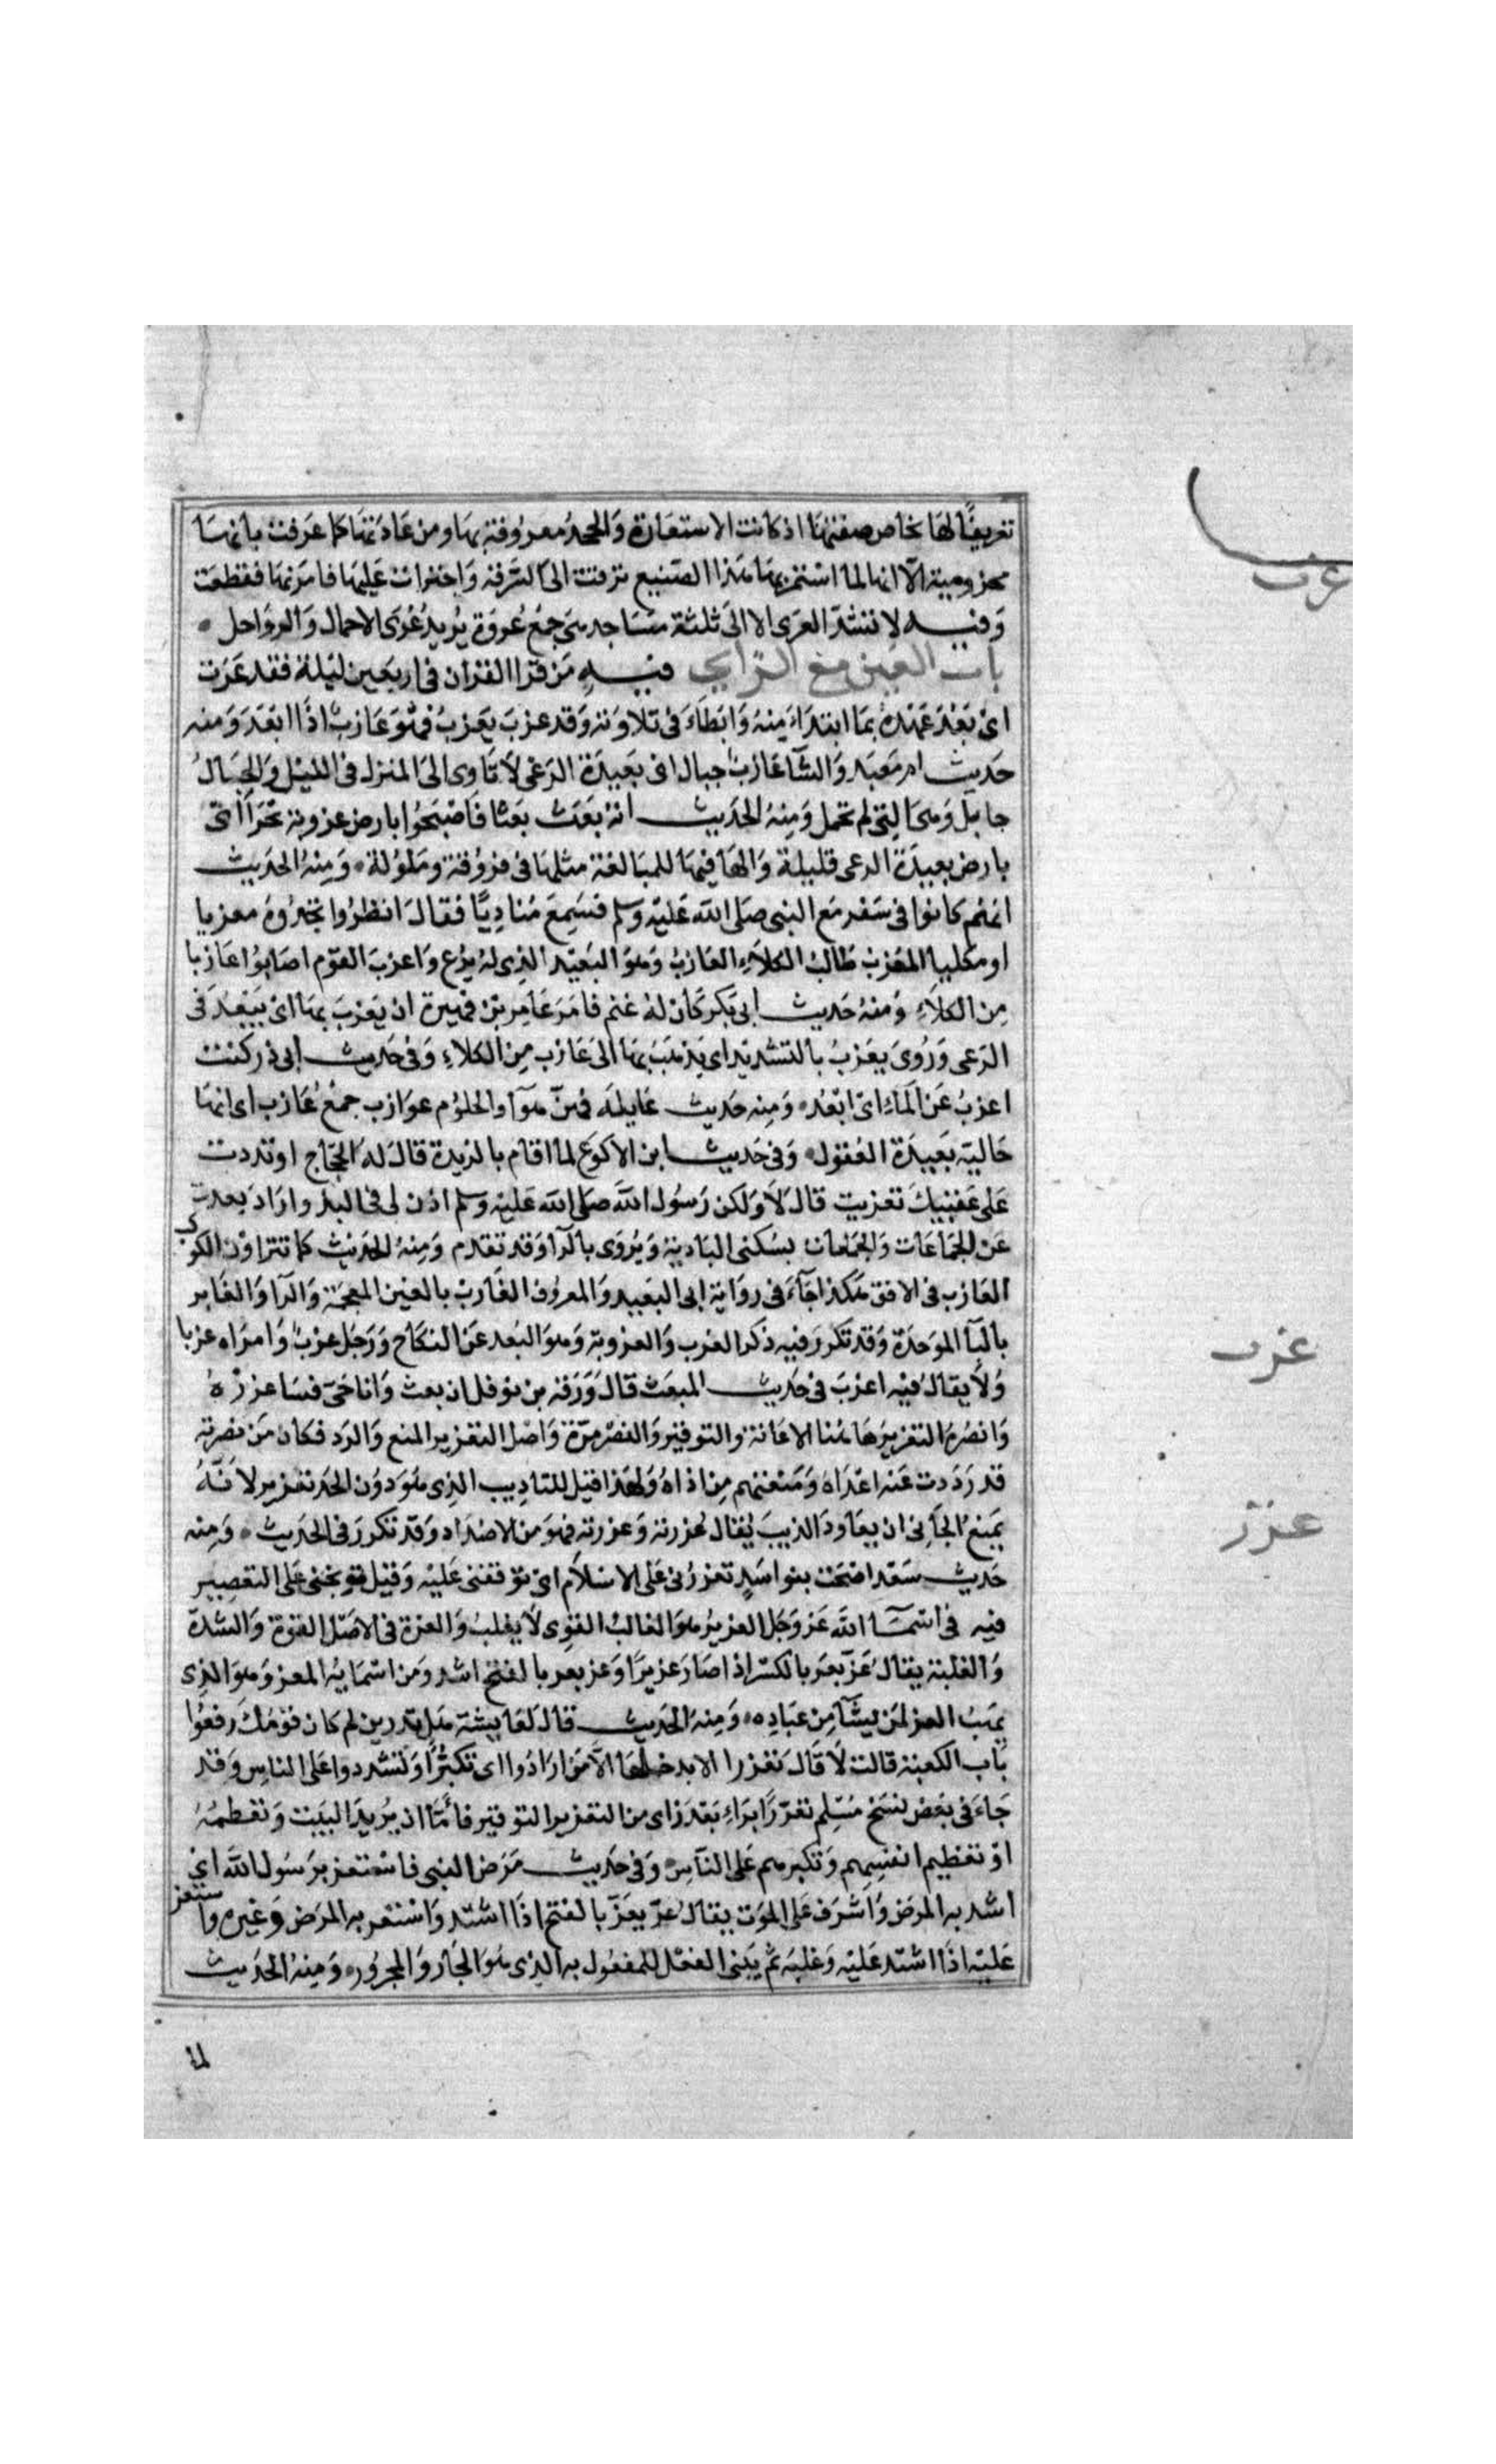 تعريفًا لها بخاص صفتها اذ كانت الاستعارة والجحد معروفة بها ومن عادتها كما عرفت بانها
مخزومية الا انها لما استمر بها هذا الصنيع ترقت الى السرقة واجترات عليها فامر بها فقطعت
وفيه لا تشد العرى الا الى ثلثة مساجد هى جمع عروة يريد عرى الاحمال والرواحل
باب العين مع الزاى فيه من قرا القران فى اربعين ليلة فقد عزب
اى بعد عهده بما ابتداء منه وابطاء فى تلاوته وقد عزب يعزب فهو عازب اذا ابعد ومنه
حديث ام معبد والشآ عازب جبال اى بعيدة المرعى لا تاوى الى المنزل فى الليل والجبال
جابل وهى التى لم تحمل ومنه الحديث انه بعث بعثا فاصبحوا بارض عزوبة بحرا اى
بارض بعيدة المرعى قليلة والها فيها للمبالغة مثلها فى فروقة وملولة ومنه الحديث
انهم كانوا فى سفر مع النبى صلى الله عليه وسلم فسمع مناديًا فقال انظروا تجدوه معزبا
او مكليا المعزب طالب الكلاء العازب وهو البعيد الذى لم يرع واعزب القوم اصابوا عازبا
من الكلاء ومنه حديث ابى بكر كان له غنم فامر عامر بن فهيرة ان يعزب بها اى يبعد فى
المرعى وروى يعزب بالتشديد اى يذهب بها الى عازب من الكلاء وفى حديث ابى ذر كنت
اعزب عن الماء اى ابعد ومنه حديث عاتكة فهن هوآ والحلوم عوازب جمع عازب اى انها
خالية بعيدة العقول وفى حديث ابن الاكوع لما اقام بالربذة قال له الحجاج ارتددت
على عقبيك تعزبت قال لا ولكن رسول الله صلى الله عليه وسلم اذن لى فى البدو اراد بعدت
عن الجماعات والجمعات بسكنى البادية ويروى بالرا وقد تقدم ومنه الحديث كما تتراون الكوكب
العازب فى الافق هكذا جاء فى رواية اى البعيد والمعروف الغارب بالغين المعجمة والرا والغابر
بالبآ الموحدة وقد تكرر فيه ذكر العزب والعزوبة وهو البعد عن النكاح ورجل عزب وامراه عزبا
ولا يقال فيه اعزب فى حديث المبعث قال ورقة بن نوفل ان بعث وانا حى فساعزره
وانصره التعزير هاهنا الاعانة والتوقير والنصر مرة واصل التعزير المنع والرد فكان من نصرته
قد رددت عنه اعداه ومنعتهم من اذاه ولهذا قيل للتاديب الذى هو دون الحد تعزير لانه
يمنع الجانى ان يعاود الذنب يقال عزرته وعزرته فهو من الاضداد وقد تكرر فى الحديث ومنه
حديث سعد اضحت بنو اسد تعزرنى على الاسلام اى توقفنى عليه وقيل توبخنى على التقصير
فيه فى اسمآ الله عز وجل العزيز هو الغالب القوى لا يغلب والعزة فى الاصل القوة والشدة
والغلبة يقال عز يعز بالكسر اذا صار عزيزا وعز يعز بالفتح اشد ومن اسمايه المعز وهو الذى
يهب العز لمن يشآ من عباده ومنه الحديث قال لعايشة هل تدرين لم كان قومك رفعوا
باب الكعبة قالت لا قال تعززا الا يدخلها الا من ارادوا اى تكبرًا وتشددوا على الناس وقد
جاء فى بعض نسخ مسلم تعزرًا براء بعد زاى من التعزير التوقير فاما ان يريد البيت وتعظيمه
او تعظيم انفسهم وتكبرهم على الناس وفى حديث مرض النبى فاستعز برسول الله اى
اشد به المرض واشرف على الموت يقال عز يعز بالفتح اذا اشتد واستعز به المرض وغيره واستعز
عليه اذا اشتد عليه وغلبه ثم يبنى الفعل للمفعول به الذى هو الجار والمجرور ومنه الحديث
لما
عزب
عزب
عزر